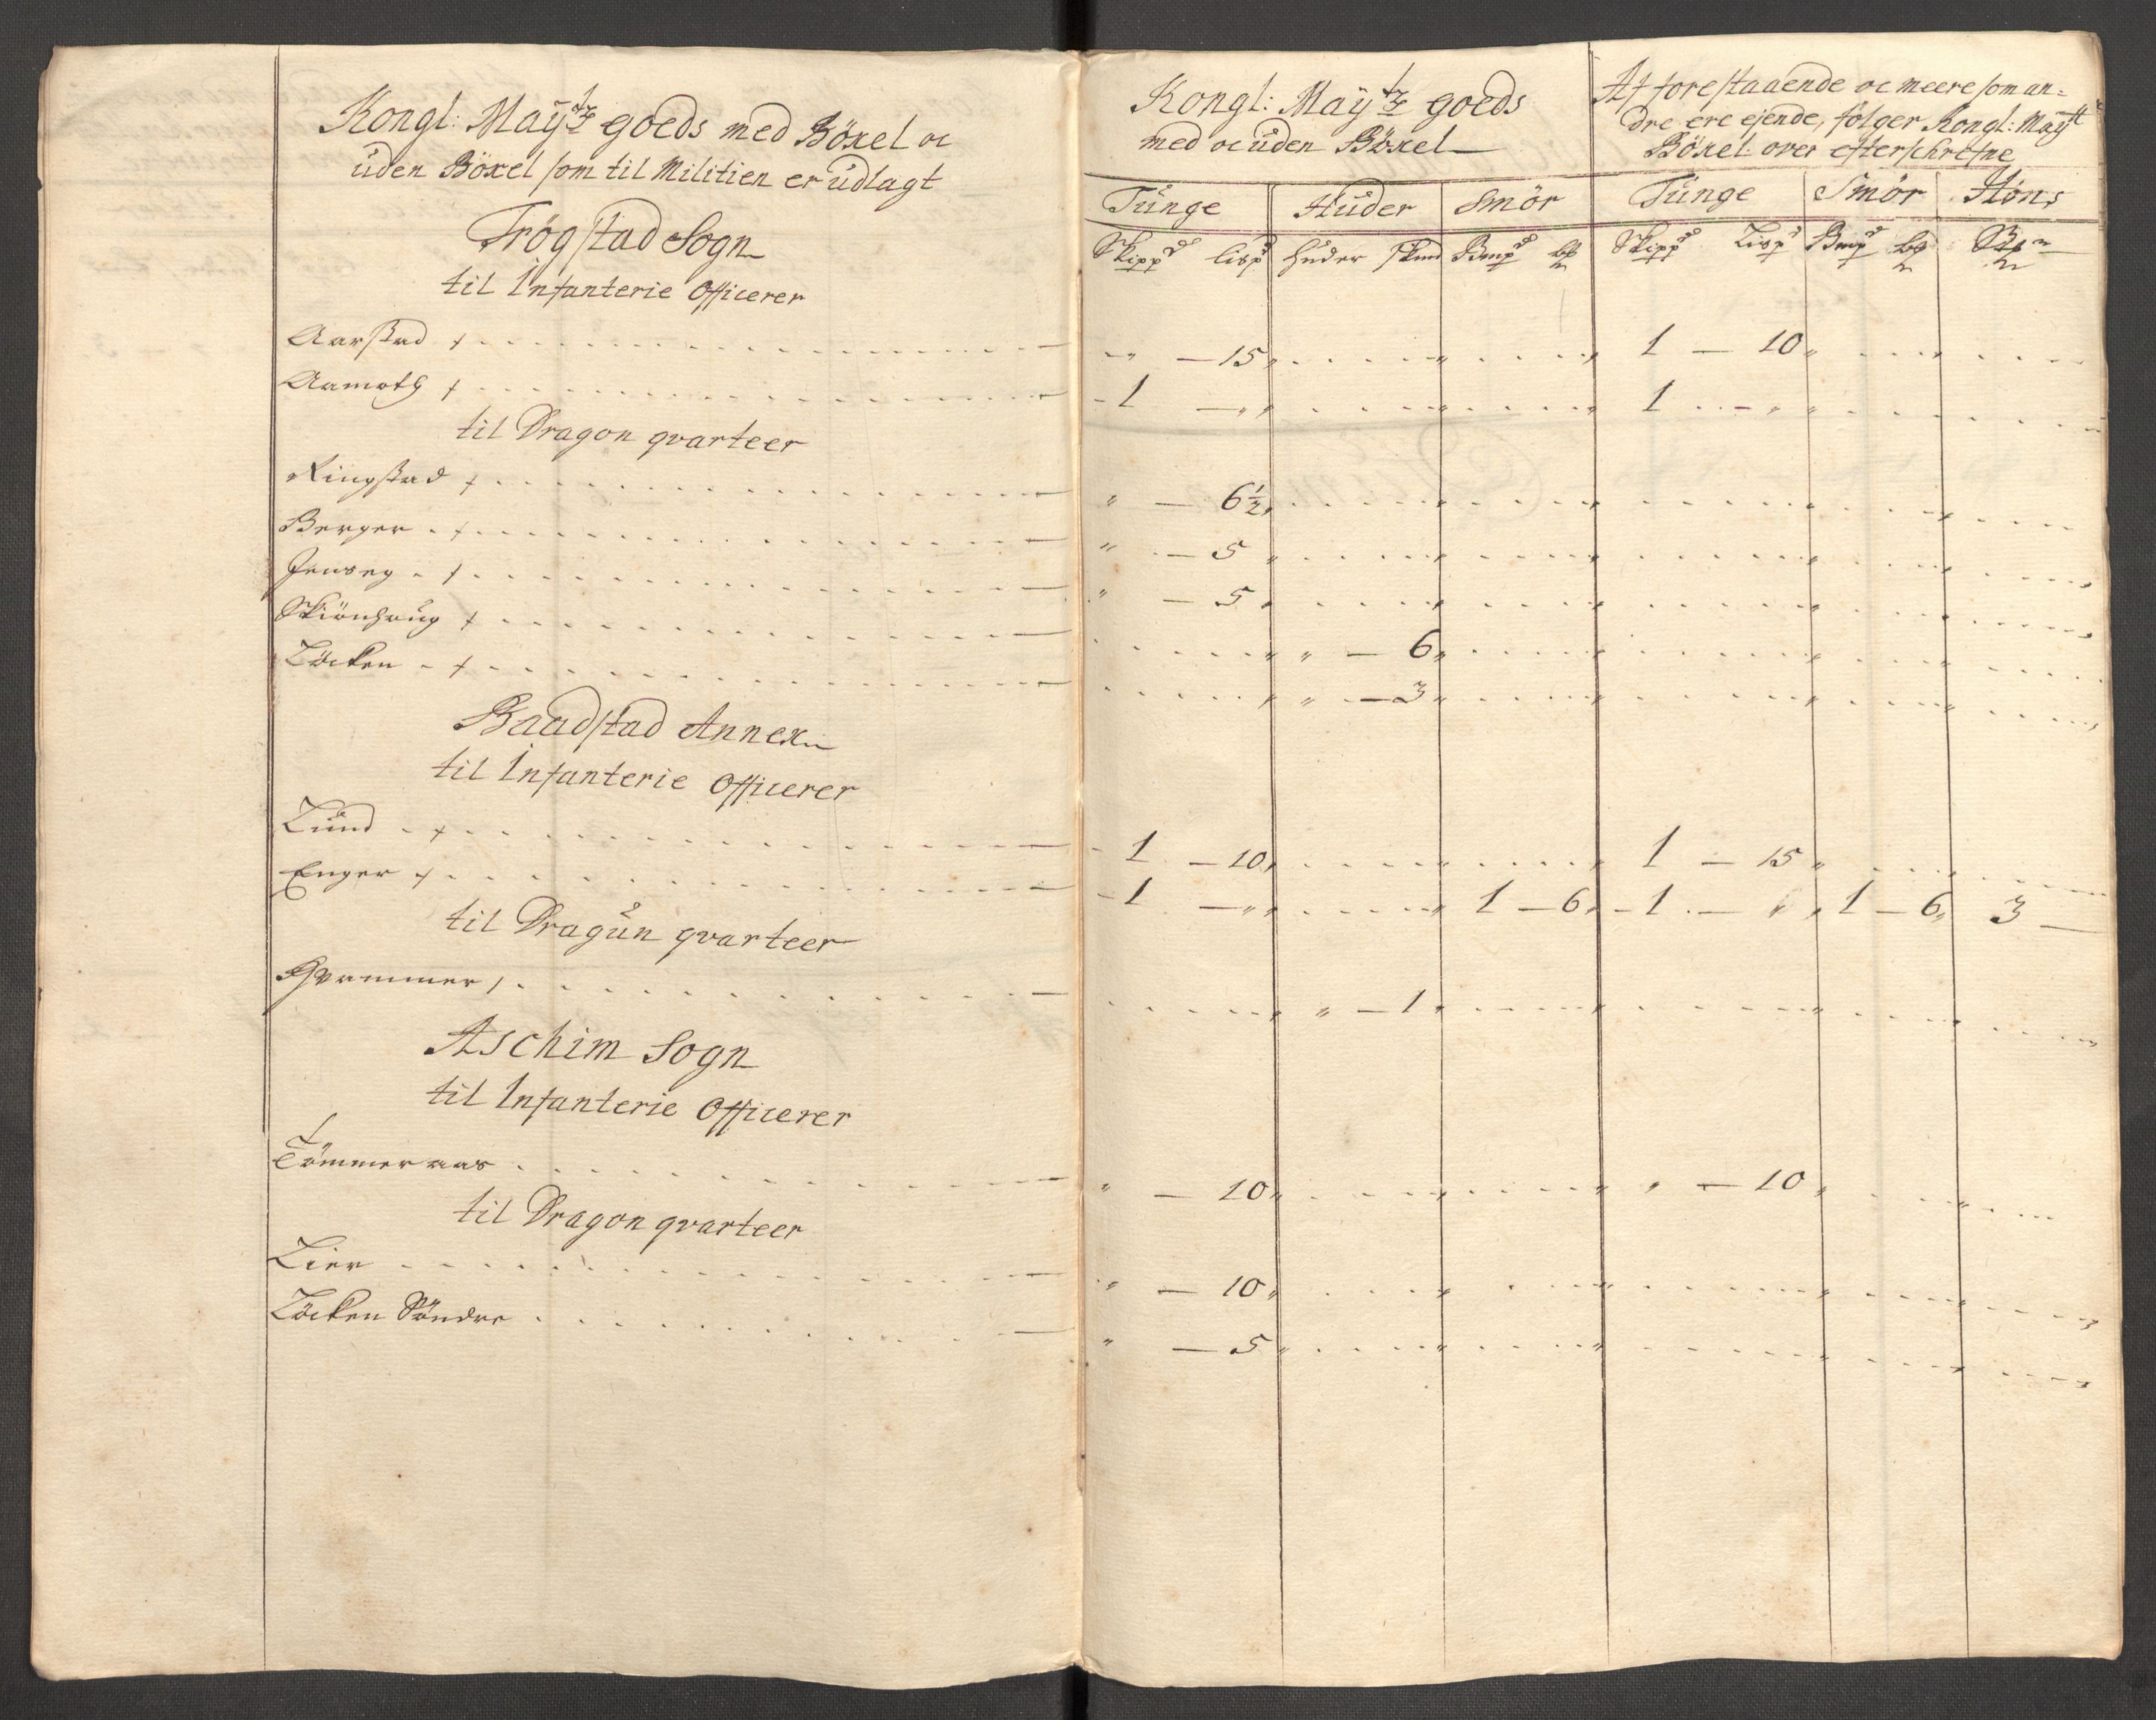 Kongl: May<sup>tz</sup> goeds med Böxel oc
uden Böxel som til Militien er udlagt
Trögstad Sogn
til Infanterie Officerer
Aarstad
Aamoth
til Dragon qvarteer
Ringstad
Berger
Jenseg
Skiönhaug
Löcken
Baadstad Annex
til Infanterie Officerer
Lund
Enger
til Dragun qvarteer
Hvammer
Aschim Sogn
til Infanterie Officerer
Tömmeraas
til Dragon qvarteer
Lier
Löcken Söndre
Kongl: May<sup>tz</sup> goeds
med oc uden Böxel
Af forestaaende oc meere som an=
dre ere ejende, fölger Kongl: May<sup>tt</sup>
Böxel over efterschrefne
Tunge Huder Smör Tunge Smör Höns
Skipp<sup>d</sup> Lisp<sup>d</sup> huder skind Bmp<sup>d</sup> Skipp<sup>d</sup> Lisp<sup>d</sup> Bmp<sup>d</sup>
" — 15 " " " 1 — 10 "
1 — " " " " 1 — " "
" — 6½
" — 5
" — 5
" — 6
" — 3
1 — 10 " " " 1 — 15 "
1 — " " " 1 — 6 1 — " 1 — 6 3
" — 1
" — 10 " " " " — 10
" — 10
" — 5